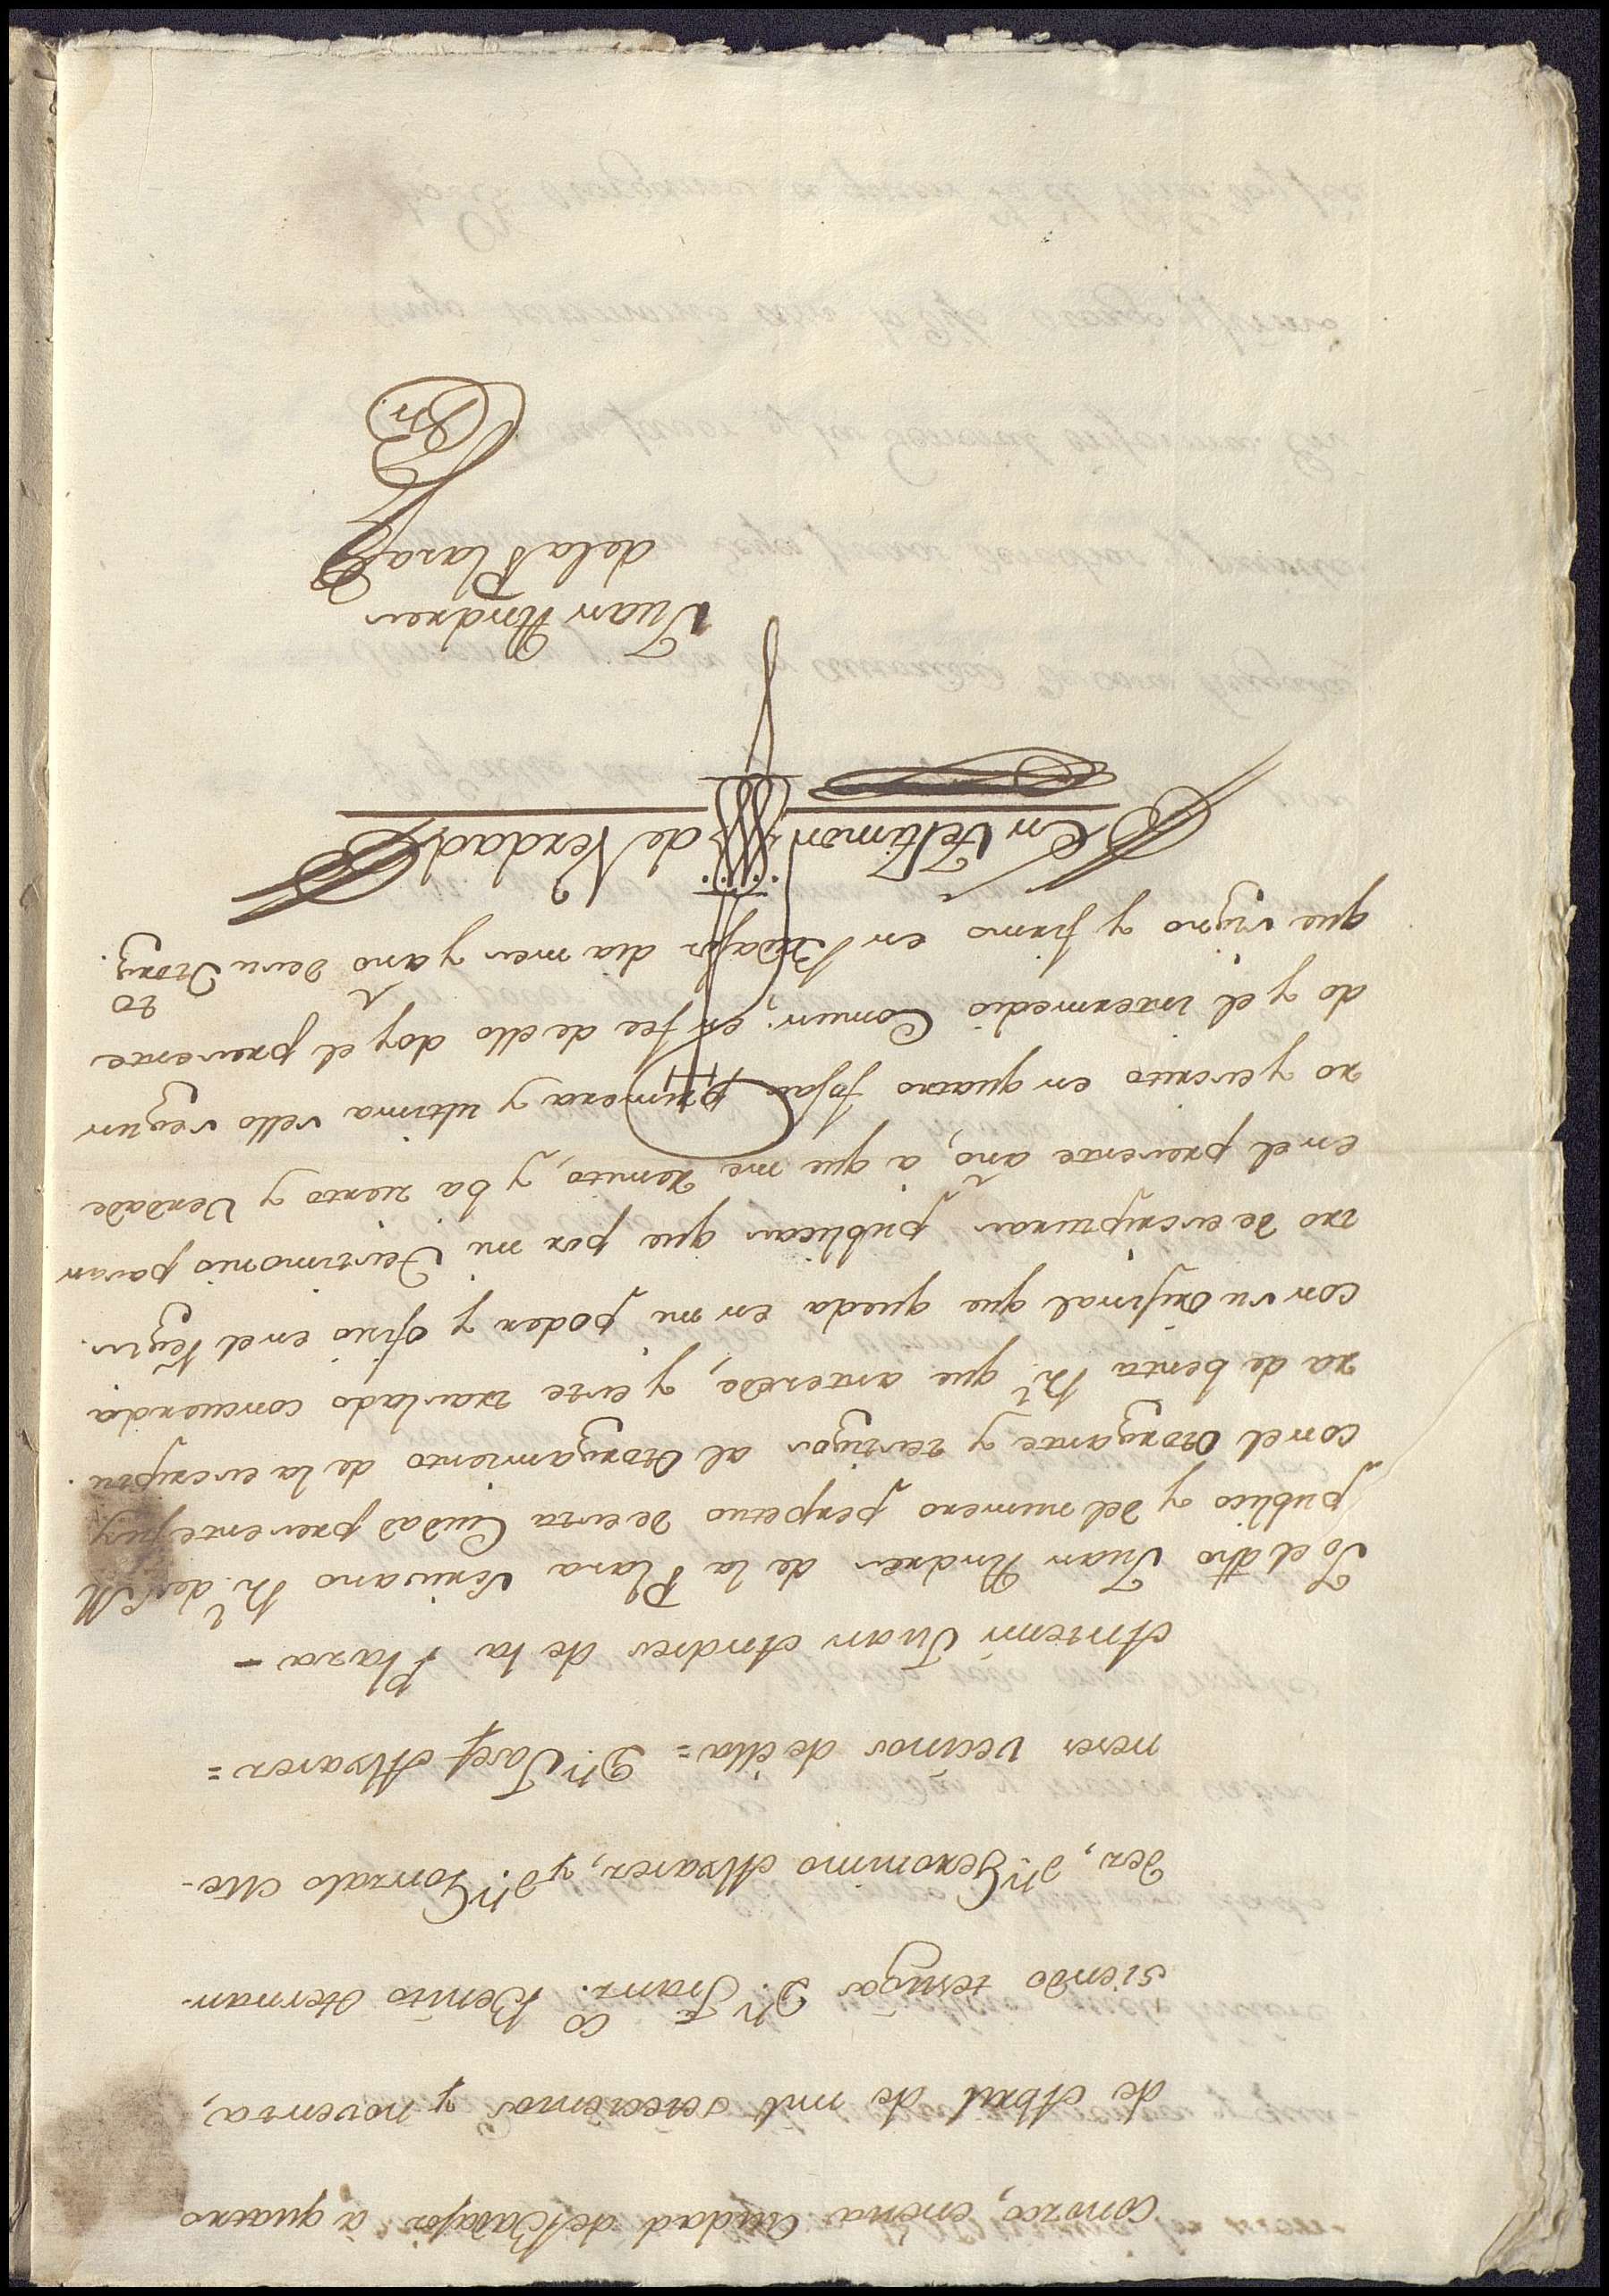 Conozco, enesta Ciudad de Badajoz a quatro
de Abril de mil setecientos y noventa,
siendo testigos Dn. Franco. Benito Hernan-
dez, dn. Geronimo Alvarez, y dn. Gonzalo Me-
neses vecinos de ella = Dn. Josef Alvarez =
Antemi Juan Andres de la Plaza -
Yo el dho Juan Andres de la Plaza Escrivano Rl. de S.M.
publico y del numero perpetuo de esta Ciudad presente fuy
con el otorgante y testigos al otorgamiento de la escriptu.
ra de benta Rl. que antecede, y este traslado concuerda
con su orijinal que queda en mi poder y ofizio en el Regis.
tro de escripturas publicas que por mi Testimonio pasan
en el presente año, a que me remito, y ba zierto y verdade
ro y escrito en quatro fojas primera y ultima sello segun
do y el intermedio Comun; en fee de ello doy el presente
que signo y firmo en Badajoz dia mes y año de su Otorg.to
En Testimonio de Verdad
Juan Andres
de la Plaza